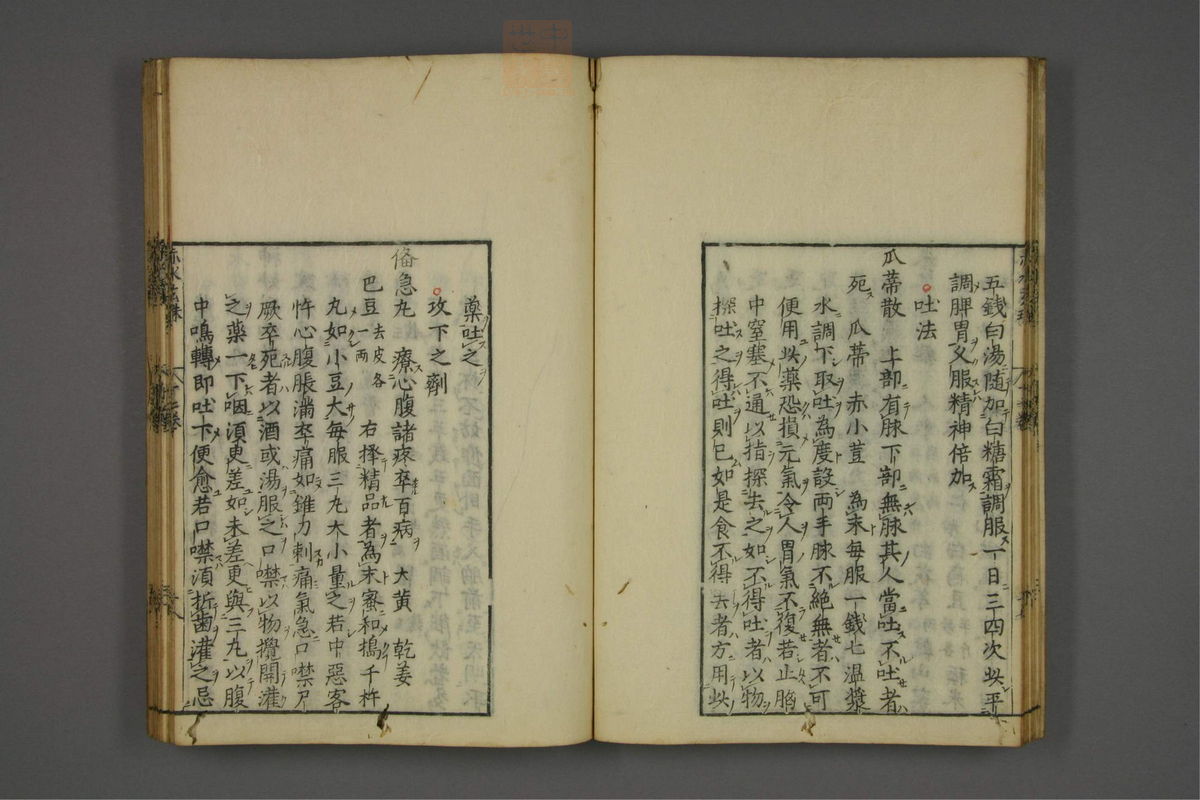 五錢白湯随加白糖霜調服一日三四次此平
調脾胃久服精神倍加
吐法
瓜蒂散 上部有脉下部無脉其人當吐不吐者
死 瓜蒂 赤小荳 為末每服一錢七温漿
水調下取吐為度設両手脉不絶無者不可
便用此藥恐損元氣令人胃氣不復若止胷
中窒塞不通以指探去之如不得吐者以物
探吐之得吐則已如是食不得去者方用此
藥吐之
攻下之劑
俻急丸 療心腹諸疼卒百病 大黄 乾姜
巴豆一両去皮各 右擇精品者為末蜜和搗千杵
丸如小豆大每服三丸大小量之若中惡客
忤心腹脹滿卒痛如錐刀刺痛氣急口噤尸
厥卒死者以酒或湯服之口噤以物攪開灌
之藥一下咽須更差如未差更與三丸以腹
中鳴轉即吐下便愈若口噤須折歯灌之忌
赤水玄珠